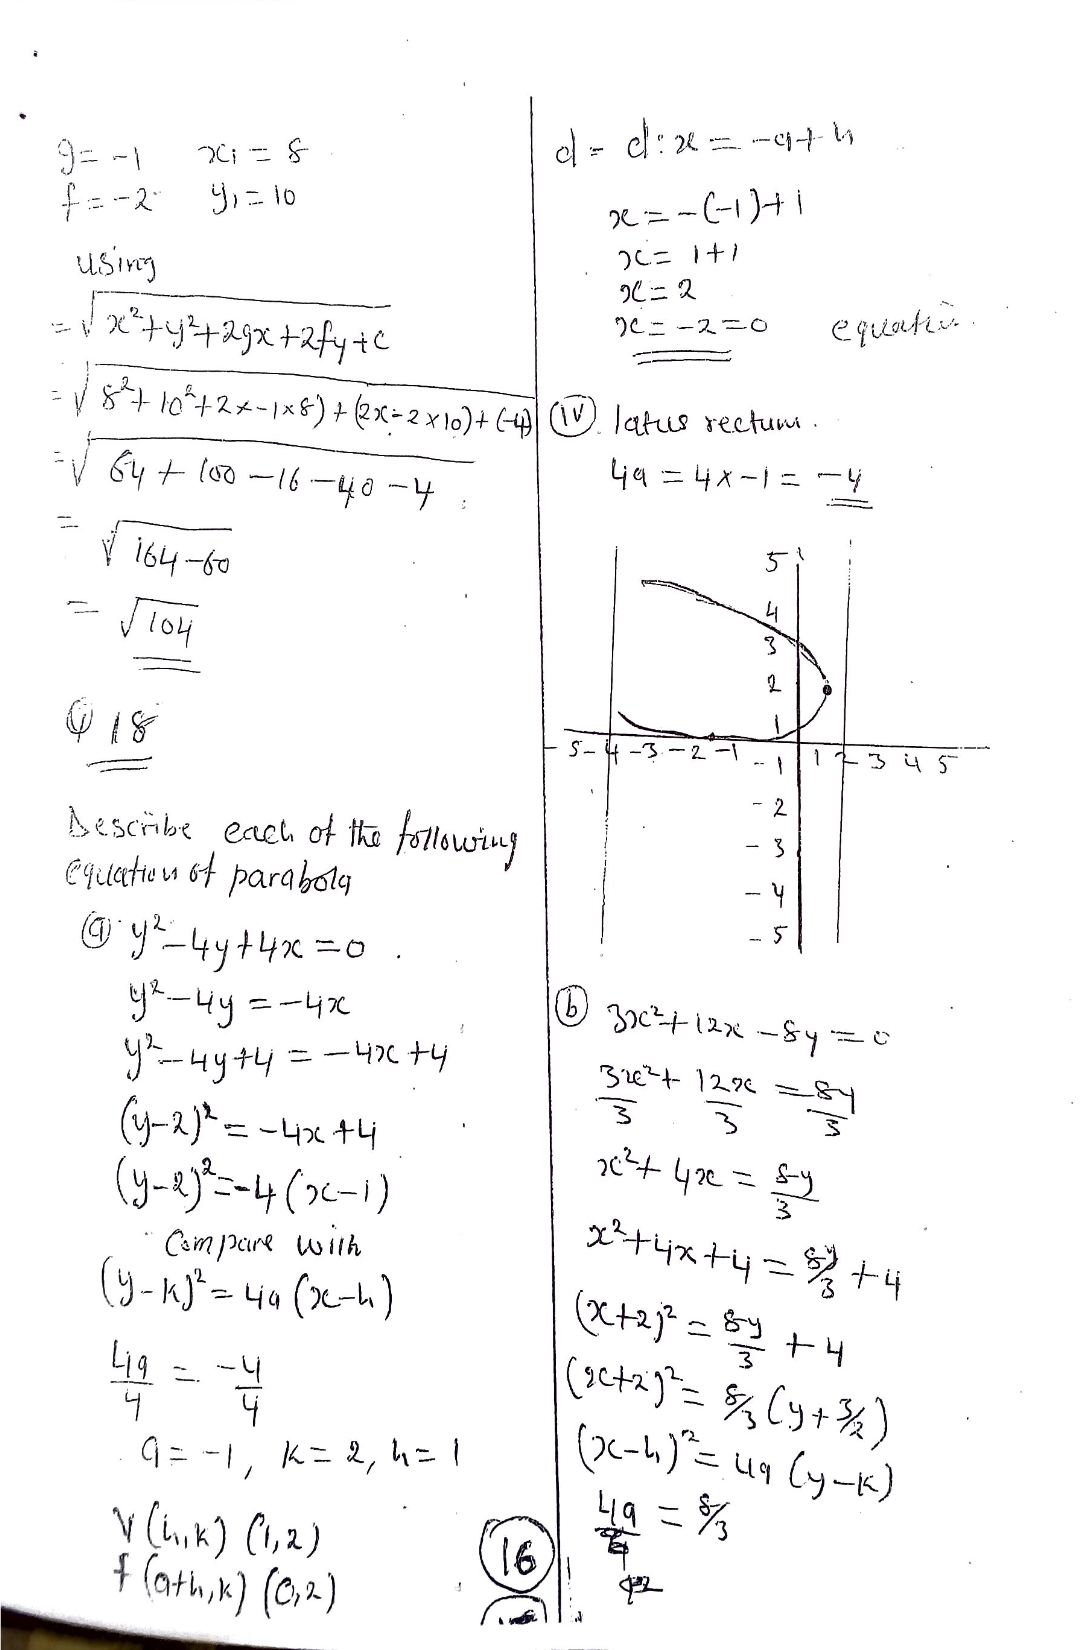 g = -1   x₁ = 8
f = -2   y₁ = 10
using
= √x²+y²+2gx+2fy+c
= √8²+10²+2x-1x8)+(2x-2x10)+(-4)
= √64+100-16-40-4
= √164-60
= √104
Q 18
Describe each of the following
equation of parabola
(a) y²-4y+4x=0
y²-4y=-4x
y²-4y+4=-4x+4
(y-2)²=-4x+4
(y-2)²=-4(x-1)
Compare with
(y-k)²=4a(x-h)
4a/4 = -4/4
a=-1, k=2, h=1
V(h,k) (1,2)
f(a+h,k) (0,2)
d = d:x=-a+h
x=-(-1)+1
x=1+1
x=2
x=-2=0
(iv) latus rectum.
4a=4x-1=-4
5
4
3
2
1
-5-4-3-2-1 -1 1 2 3 4 5
-2
-3
-4
-5
(b) 3x²+12x-8y=0
3x²/3+12x/3=8y/3
x²+4x=8y/3
x²+4x+4=8y/3+4
(x+2)²=8y/3+4
(x+2)²=8/3(y+3/2)
(x-h)²=4a(y-k)
4a=8/3
16